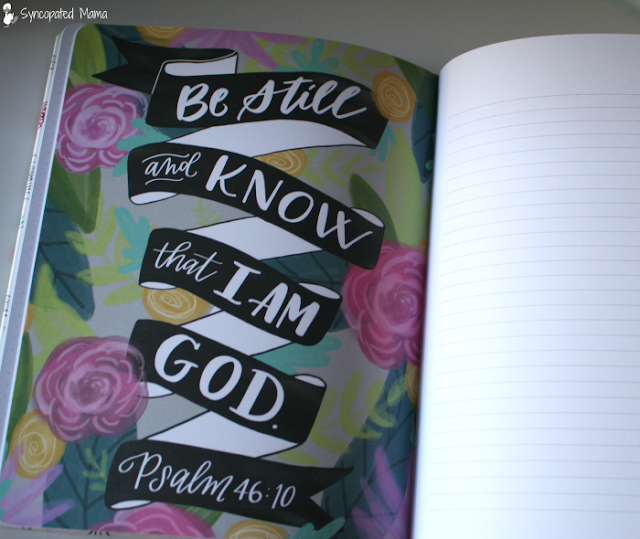 Syncopated Mama
Be Still
and KNOW
that I AM
GOD.
Psalm 46:10